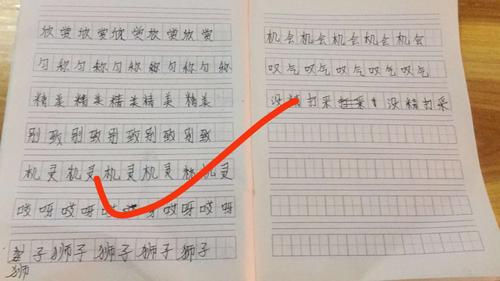 欣赏欣赏欣赏欣赏欣赏
匀称匀称匀称匀称匀称
精美精美精美精美
别致别致别致别致别致
机灵机灵机灵机灵机灵
哎呀哎呀哎呀哎呀哎呀
子狮子狮子狮子狮子
狮
机会机会机会机会机会
叹气叹气叹气叹气叹气
没精打采没精打采